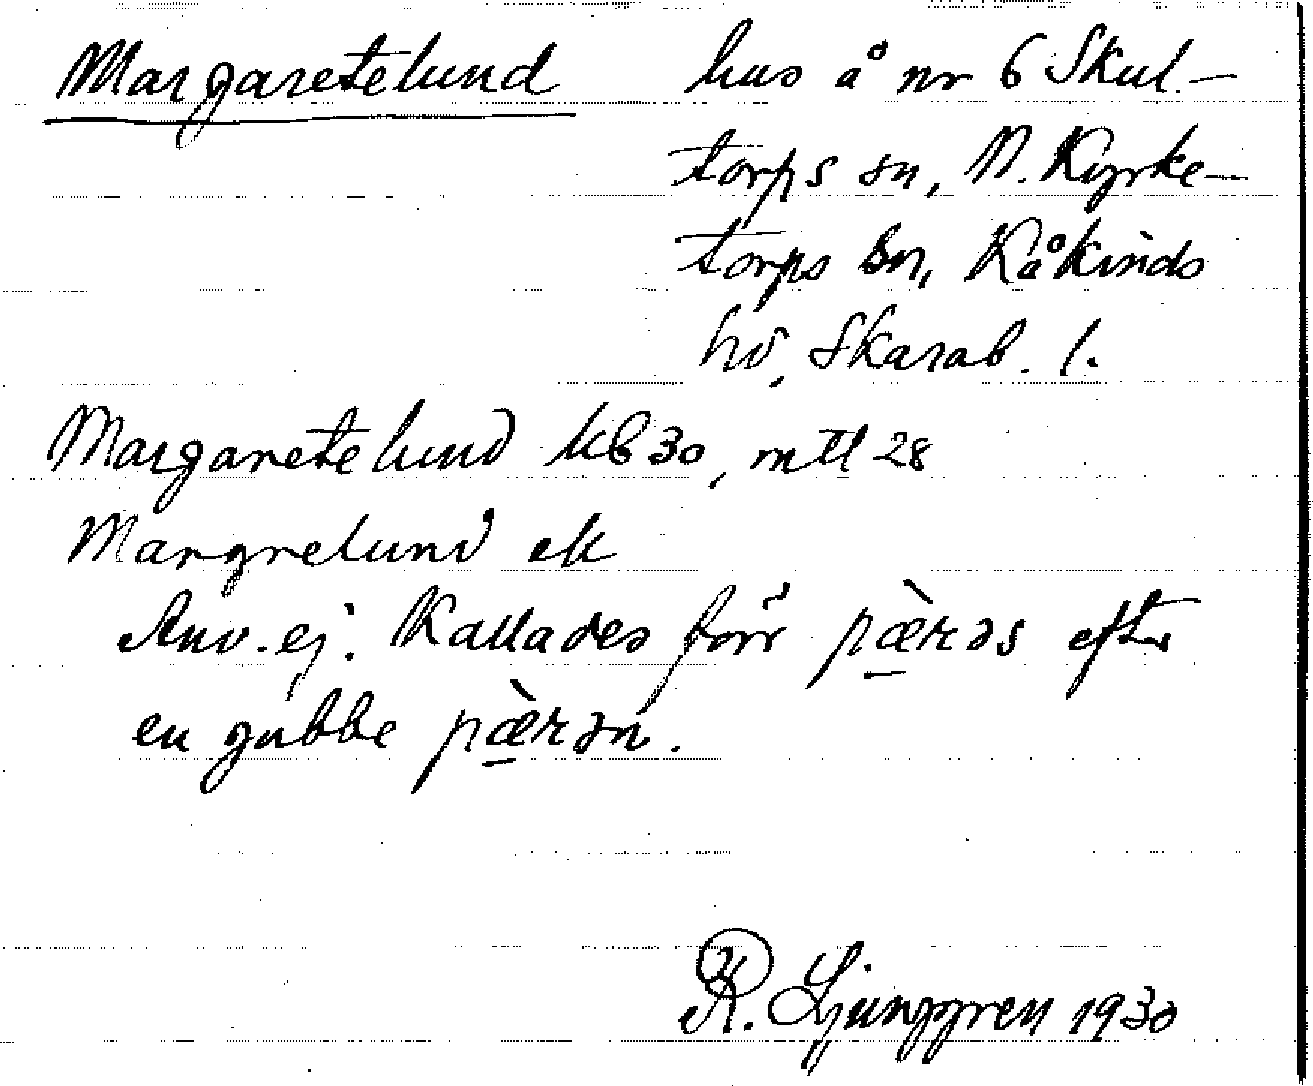 Margaretelund hus å nr 6 Skul-
torps sn, N. Kyrke-
torps sn, Kåkinds
hd, Skarab. l.
Margaretelund kb 30, mtl 28
Margrelund ek
Anv. ej. Kallades förr pæ̀rəs efter
en gubbe pæ̀rən.
R. Ljunggren 1930